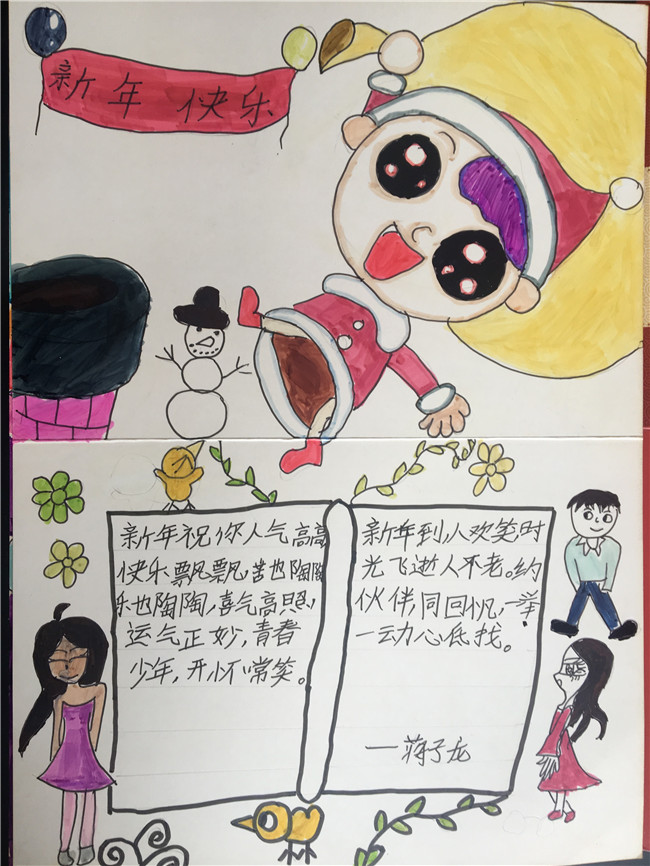 新年 快乐
新年祝你人气高高
快乐飘飘,苦也陶陶
乐也陶陶,喜气高照,
运气正妙,青春
少年,开怀常笑。
新年到,人欢笑,时
光飞逝人不老。约
伙伴,同回忆,一举
一动心底找。
—蒋子龙